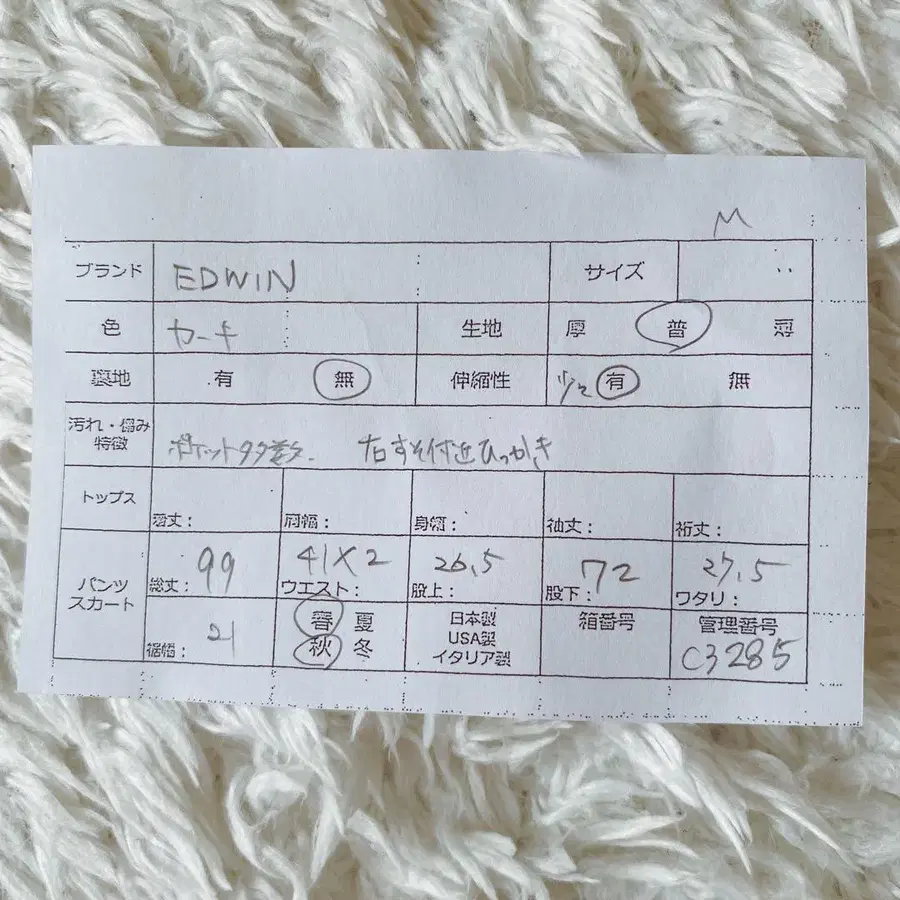 M
ブランド EDWIN サイズ
色 カーキ 生地 厚 普 薄
裏地 有 無 伸縮性 少々 有 無
汚れ・傷み
特徴 ポケット多数. 右すそ付近ひっかき
トップス 着丈: 肩幅: 身幅: 袖丈: 裄丈:
パンツ
スカート
99 41×2 26,5 72 27,5
総丈: ウエスト: 股上: 股下: ワタリ:
21 春 夏 日本製 箱番号 管理番号
裾幅: 秋 冬 USA製 C3285
イタリア製